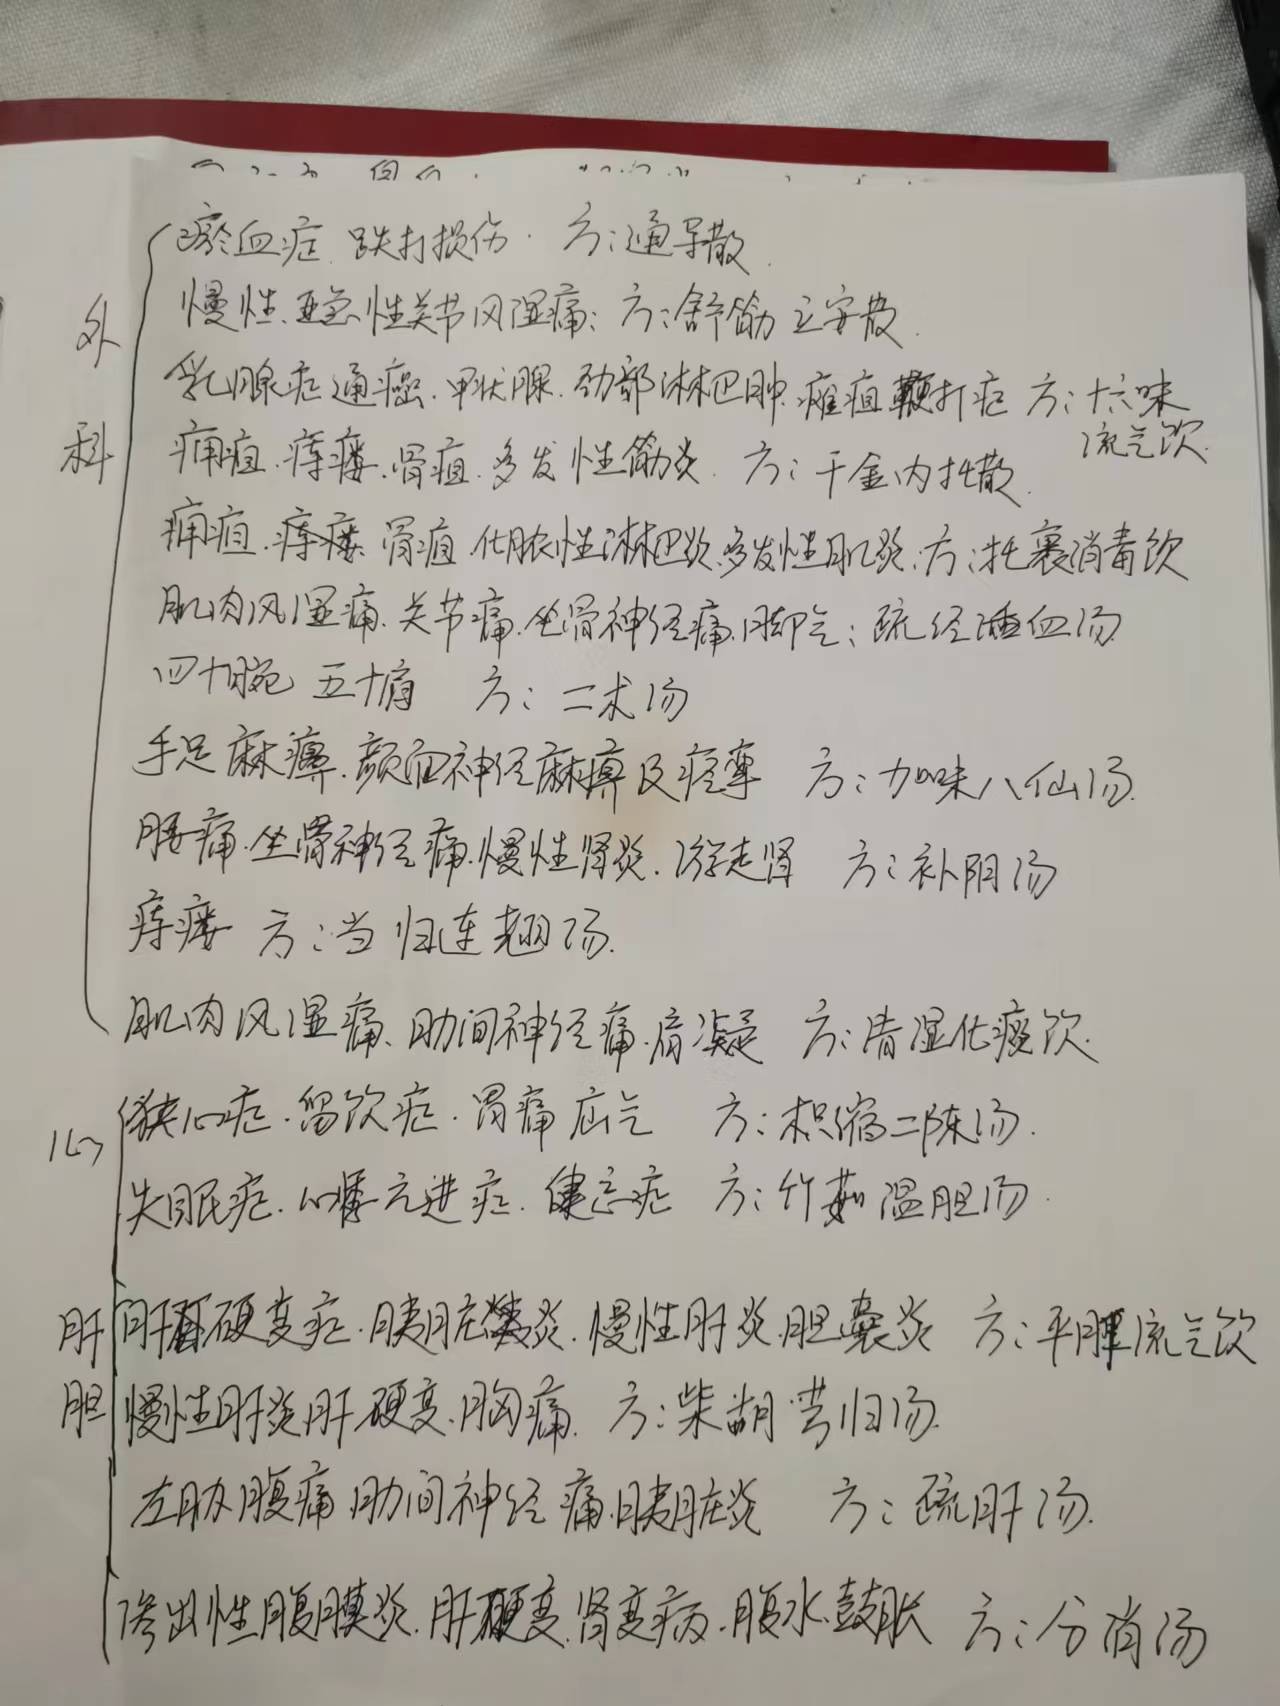 外科
瘀血症 跌打损伤. 方:通导散.
慢性、亚急性关节风湿痛: 方:舒筋立安散.
乳腺症通癌.甲状腺.劲部淋巴肿.瘫疽鞭打症 方:十六味
流气饮.
痈疽.痔瘘.骨疽.多发性筋炎. 方:千金内托散.
痈疽.痔瘘.骨疽.化脓性淋巴炎.多发性肌炎.方:托裏消毒饮
肌肉风湿痛.关节痛.坐骨神经痛.脚气:疏经活血汤
四十腕 五十肩 方:二术汤
手足麻痹.颜面神经麻痹及痉挛 方:加味八仙汤.
腰痛.坐骨神经痛.慢性肾炎.游走肾 方:补阴汤
痔瘘 方:当归连翘汤.
肌肉风湿痛、肋间神经痛.肩凝 方:清湿化痰饮.
心
狭心症.留饮症.胃痛疝气 方:枳缩二陈汤.
失眠症.心悸亢进症.健忘症 方:竹茹温胆汤.
肝胆
肝硬变症.胰脏炎.慢性肝炎.胆囊炎 方:平肝流气饮
慢性肝炎.肝硬变.胸痛. 方:柴胡芎归汤.
左肋腹痛 肋间神经痛.胰脏炎 方:疏肝汤.
渗出性腹膜炎.肝硬变.肾变病.腹水.鼓胀 方:分消汤